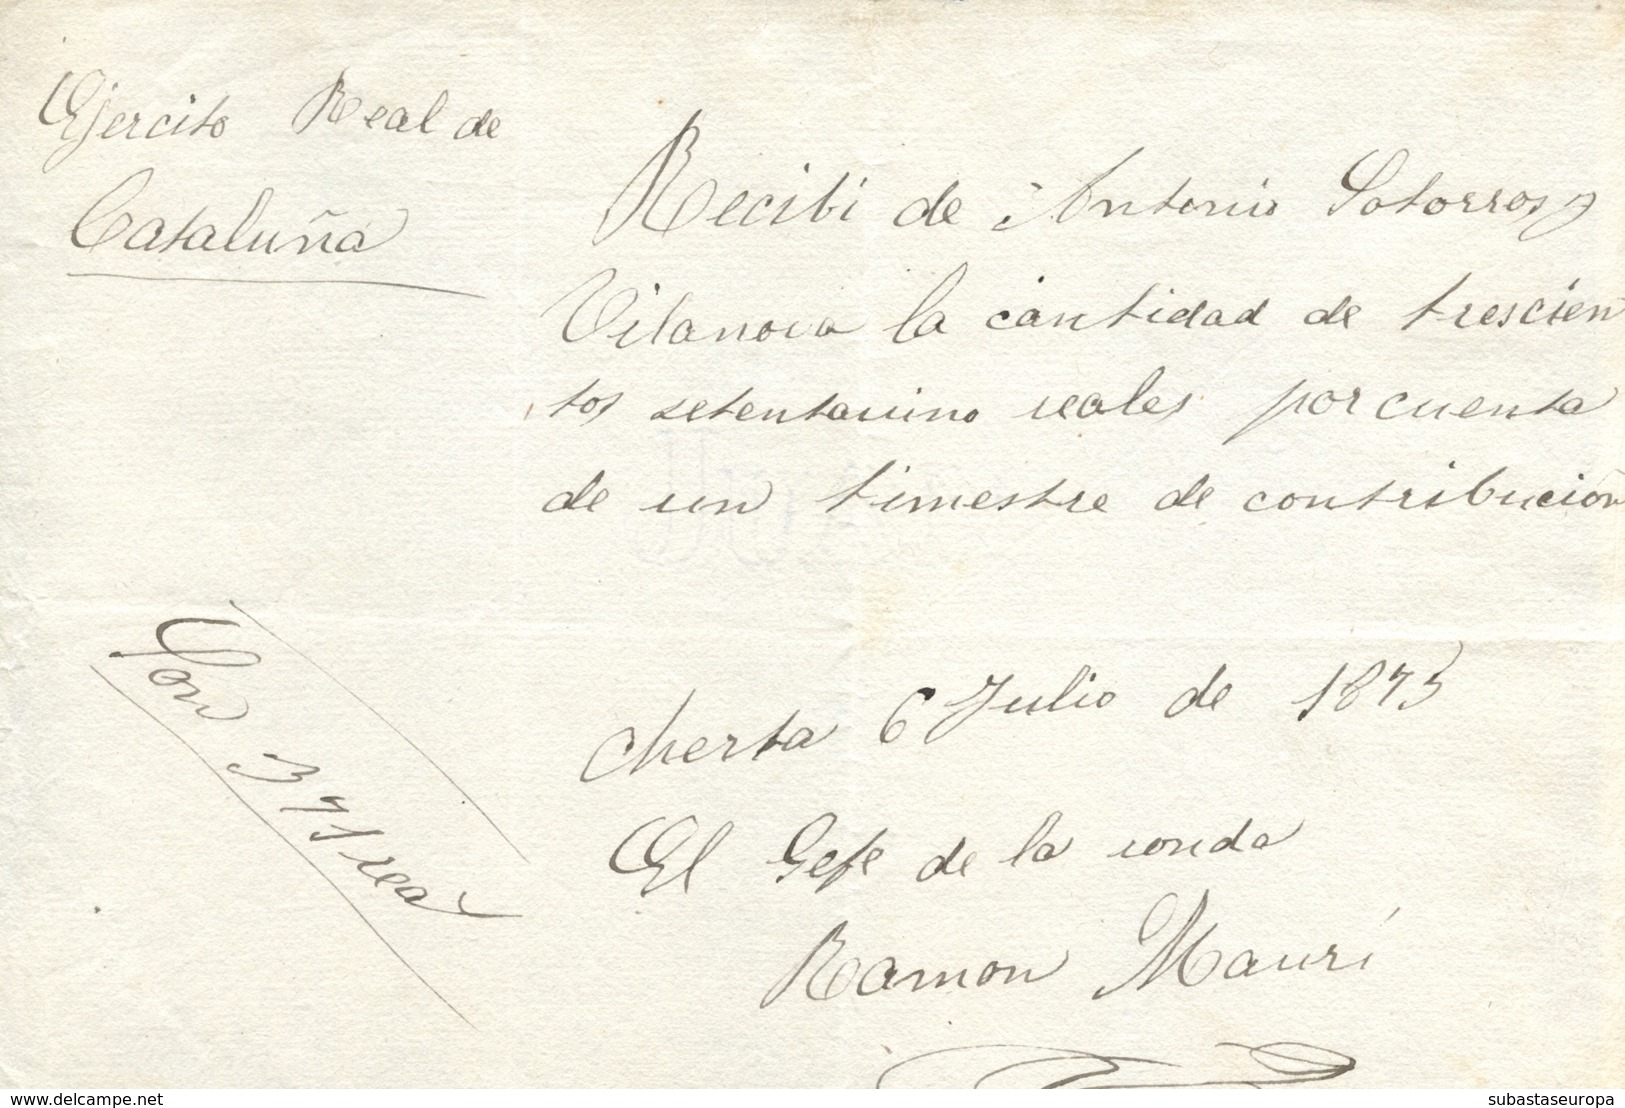 Ejercito Real de
Cataluña
Recibi de Antonio Sotorros y
Vilanova la cantidad de trescien
tos setentaiuno reales por cuenta
de un timestre de contribución
Son 371 rea
Cherta 6 Julio de 1875
El Gefe de la ronda
Ramon Maurí
www.delcampe.net
subastaseuropa